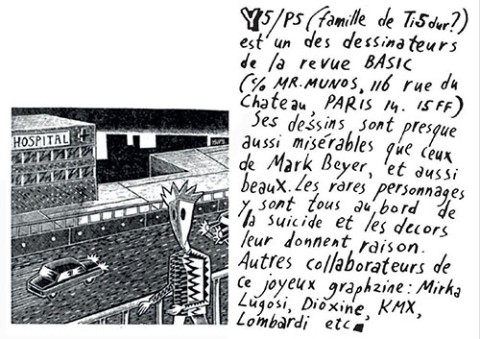 HOSPITAL
Y5/P5 (famille de Ti5dur?)
est un des dessinateurs
de la revue BASIC
(c/o MR. MUNOS, 116 rue du
Chateau, PARIS 14. 15FF)
Ses dessins sont presque
aussi misérables que ceux
de Mark Beyer, et aussi
beaux. Les rares personnages
y sont tous au bord de
la suicide et les decors
leur donnent raison.
Autres collaborateurs de
ce joyeux graphzine: Mirka
Lugosi, Dioxine, KMX,
Lombardi etc.